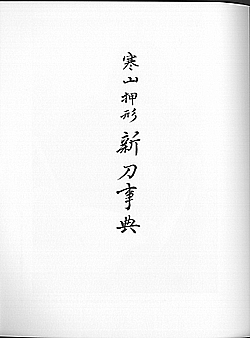 寒山押形新刀事典